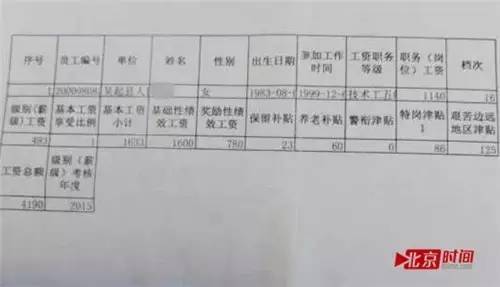 序号 员工编号 单位 姓名 性别 出生日期 参加工作时间 工资职务等级 职务（岗位）工资 档次
1 20090808 吴起县人 女 1983-08- 1999-12- 技术工五 1140 16
级别(薪级)工资 基本工资享受比例 基本工资小计 基础性绩效工资 奖励性绩效工资 保留补贴 养老补贴 警衔津贴 特岗津贴1 艰苦边远地区津贴
493 1 1633 1600 780 23 60 0 86 125
工资总额 级别（薪级）考核年度
4190 2015
北京时间